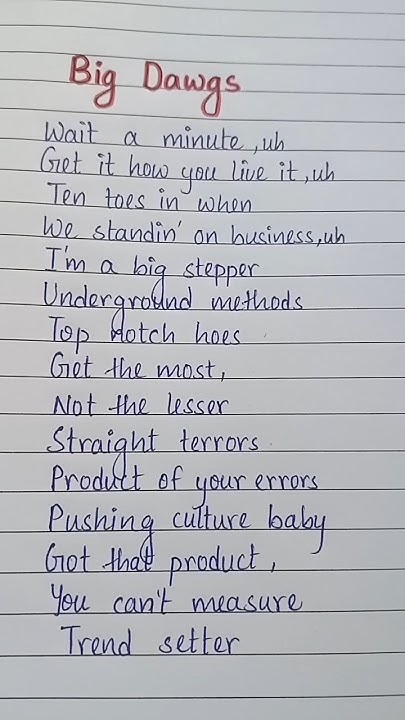 Big Dawgs
Wait a minute, uh
Get it how you live it, uh
Ten toes in when
We standin' on business, uh
I'm a big stepper
Underground methods
Top notch hoes
Get the most,
Not the lesser
Straight terrors
Product of your errors
Pushing culture baby
Got that product,
You can't measure
Trend setter